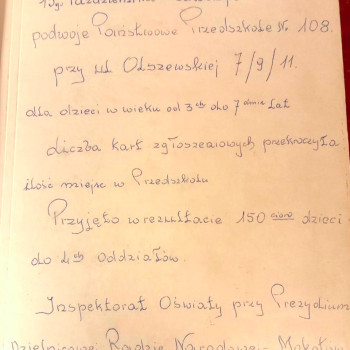 podwoje Państwowe Przedszkole Nr 108.
przy ul Olszewskiej 7/9/11.
dla dzieci w wieku od 3ch do 7 lat
Liczba kart zgłoszeniowych przekroczyła
ilość miejsc w Przedszkolu
Przyjęto w rezultacie 150 dzieci
do 4ch Oddziałów.
Inspektorat Oświaty przy Prezydium
Dzielnicowej Rady Narodowej - Mokotów